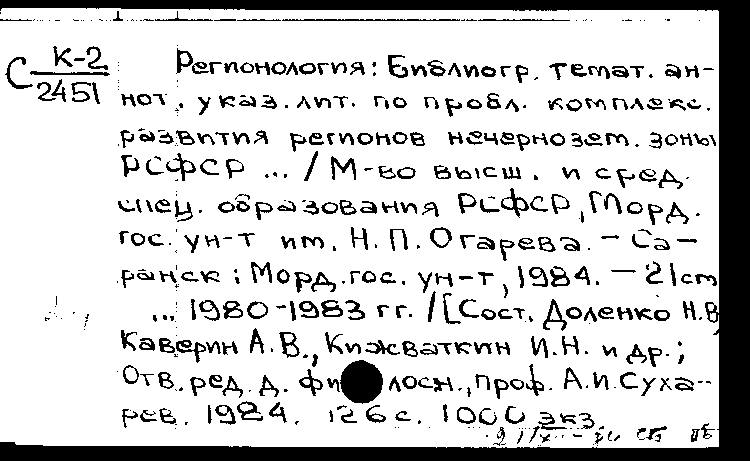 С К-2
2451
Регионология: Библиогр. темат. ан-
нот. указ. лит. по пробл. комплекс.
развития регионов нечернозем. зоны
РСФСР ... / М-во высш. и сред.
спец. образования РСФСР, Морд.
гос. ун-т им. Н. П. Огарева. – Са-
ранск : Морд. гос. ун-т, 1984. – 21 см
... 1980-1983 гг. / [Сост. Доленко Н. В
Каверин А. В., Кижваткин И. Н. и др.;
Отв. ред. д. фи лосн., проф. А. И. Суха-
рев. 1984. 126 с. 1000 экз.